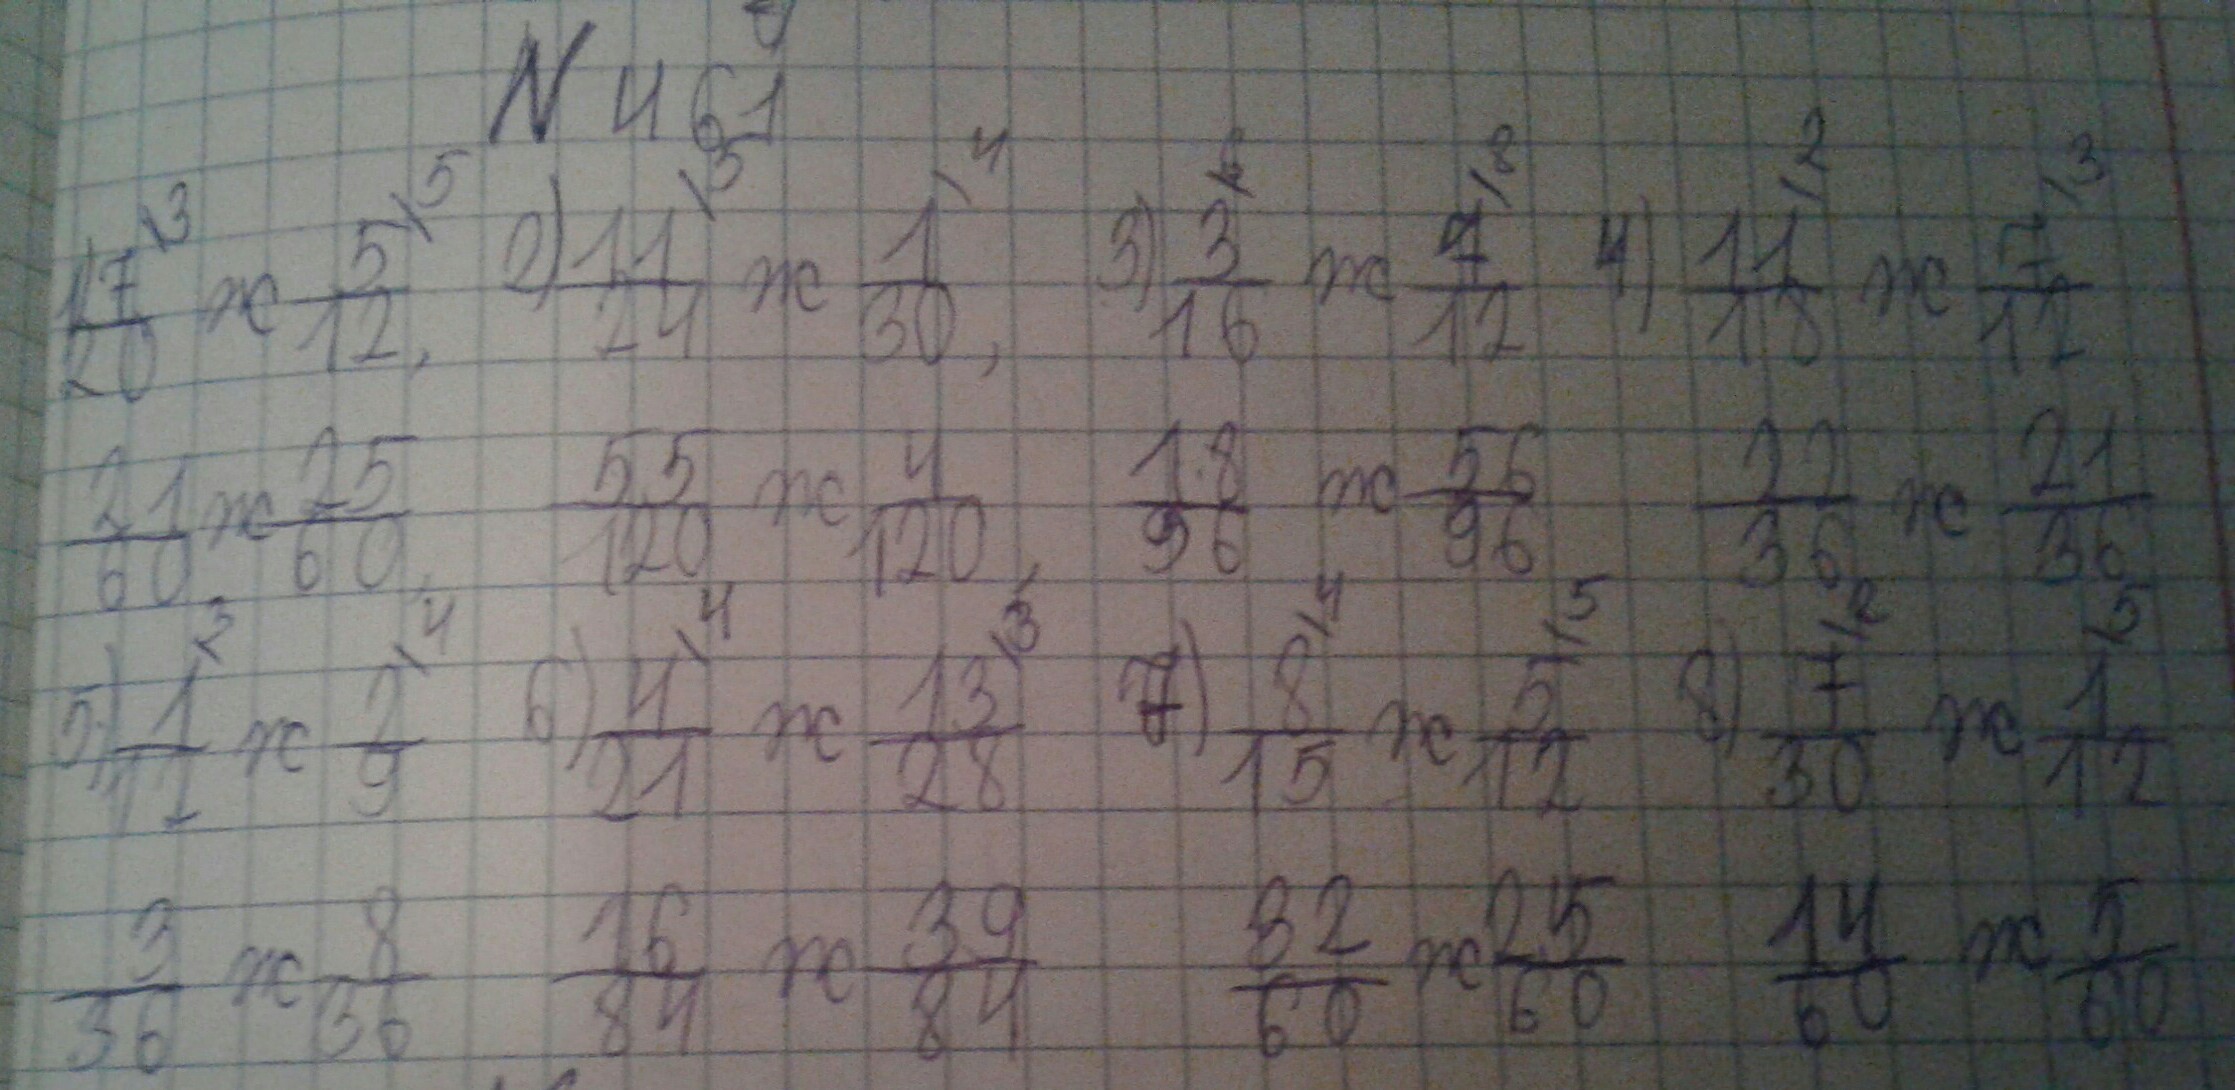 N 461
1) 7/20 \3 ж 5/12 \5, 2) 11/24 \5 ж 1/30 \4, 3) 3/16 \6 ж 7/12 \8 4) 11/18 \2 ж 7/12 \3
21/60 ж 25/60, 55/120 ж 4/120, 18/96 ж 56/96 22/36 ж 21/36
5) 1/12 \3 ж 2/9 \4 6) 4/21 \4 ж 13/28 \3 7) 8/15 \4 ж 5/12 \5 8) 7/30 \2 ж 1/12 \5
3/36 ж 8/36 16/84 ж 39/84 32/60 ж 25/60 14/60 ж 5/60